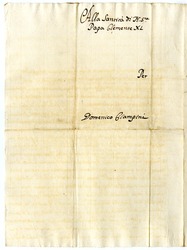 Alla Santità di N. Sre
Papa Clemente XI
Per
Domenico Ciampini